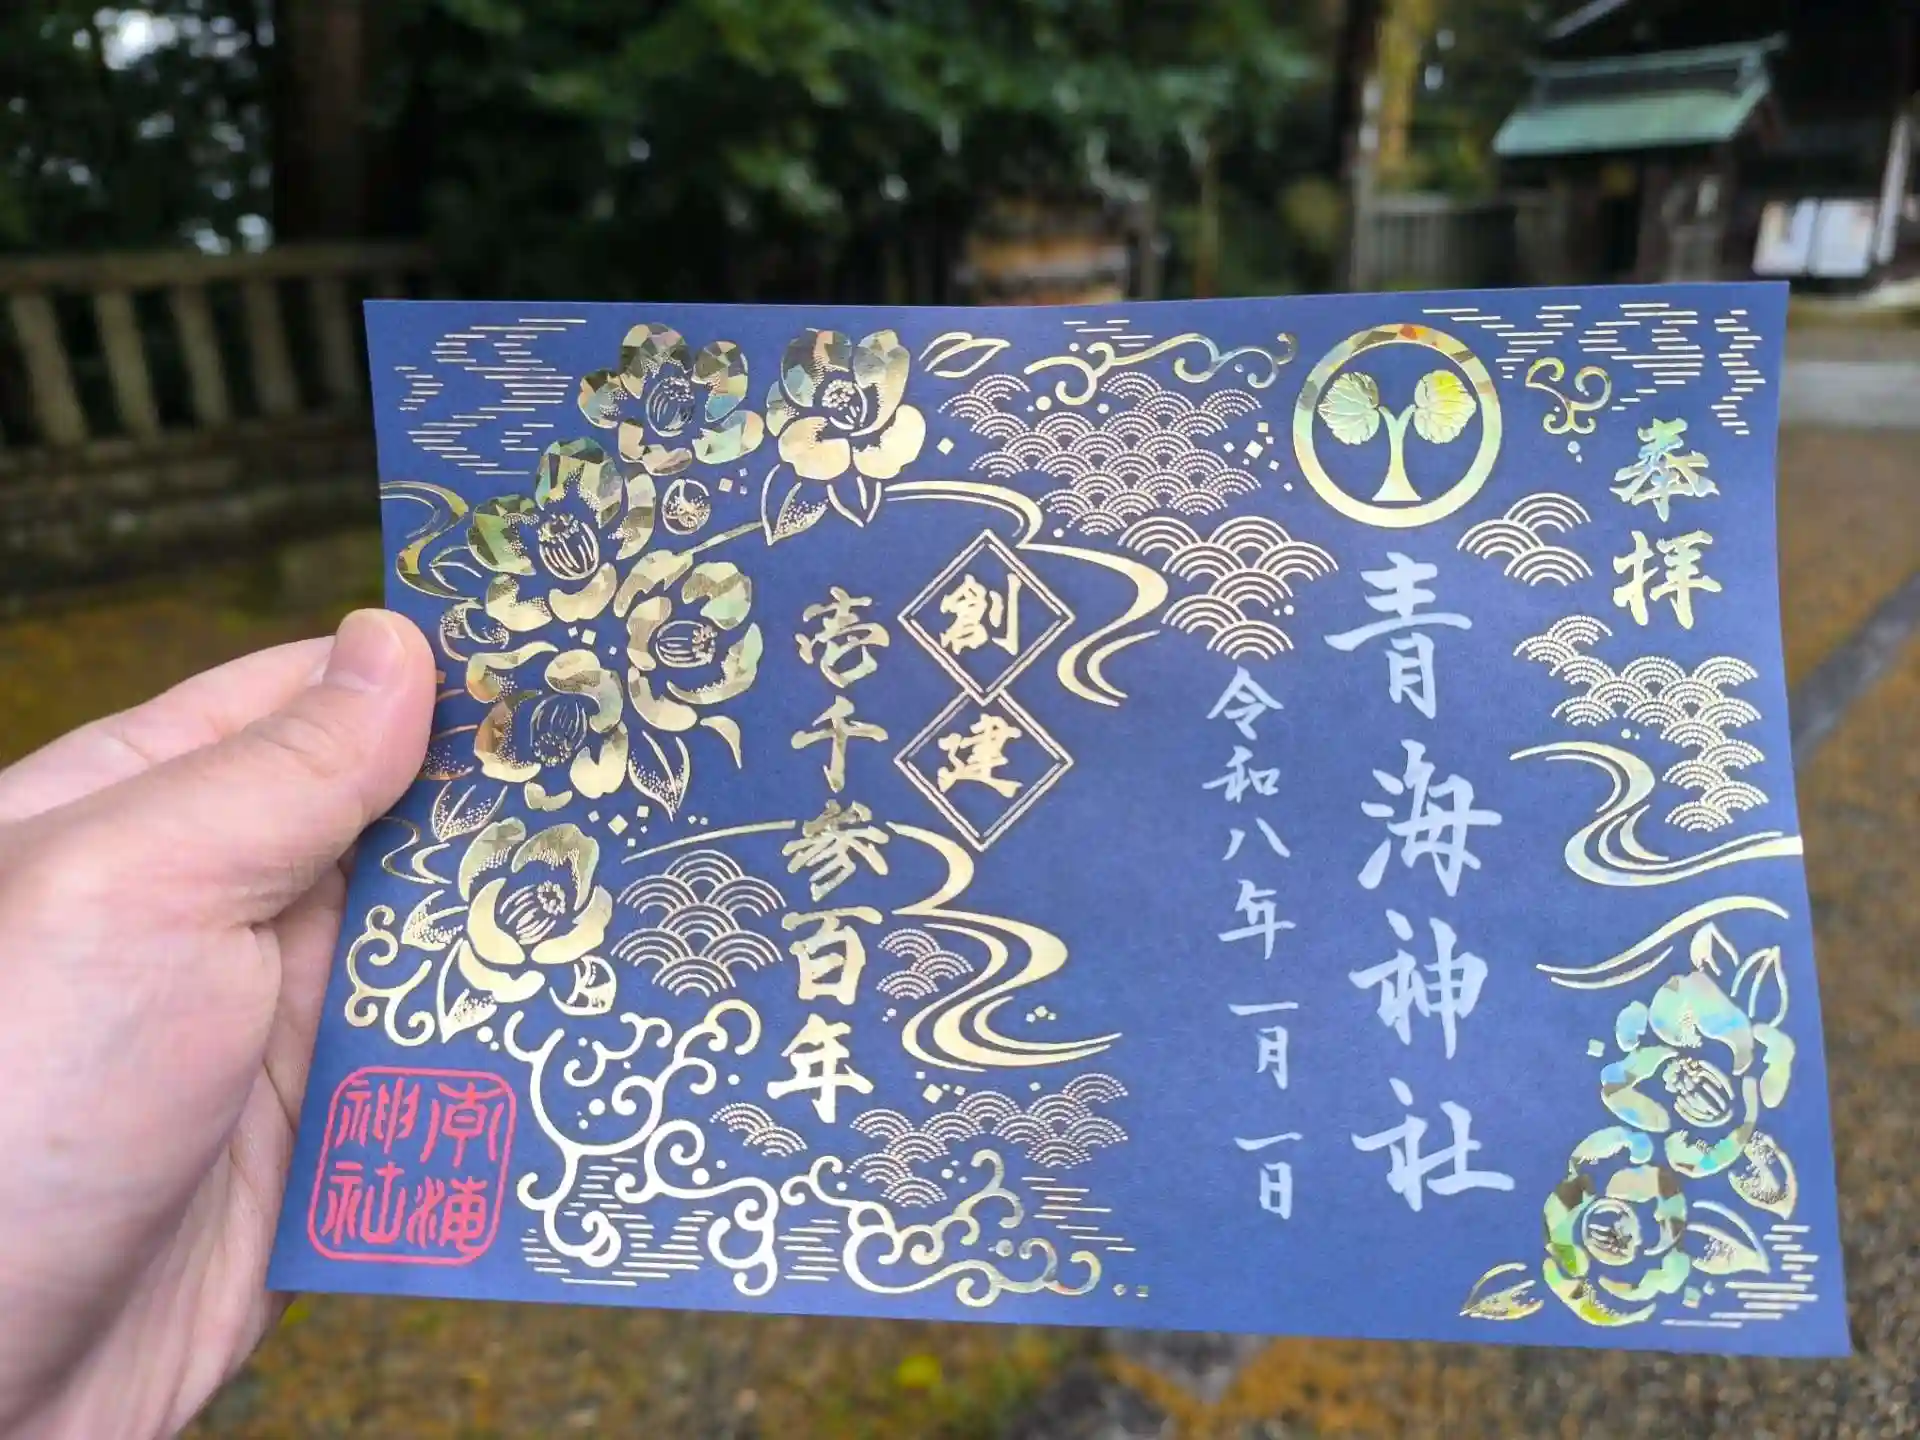 奉拝
青海神社
令和八年一月一日
創建
壱千参百年
青海
神社